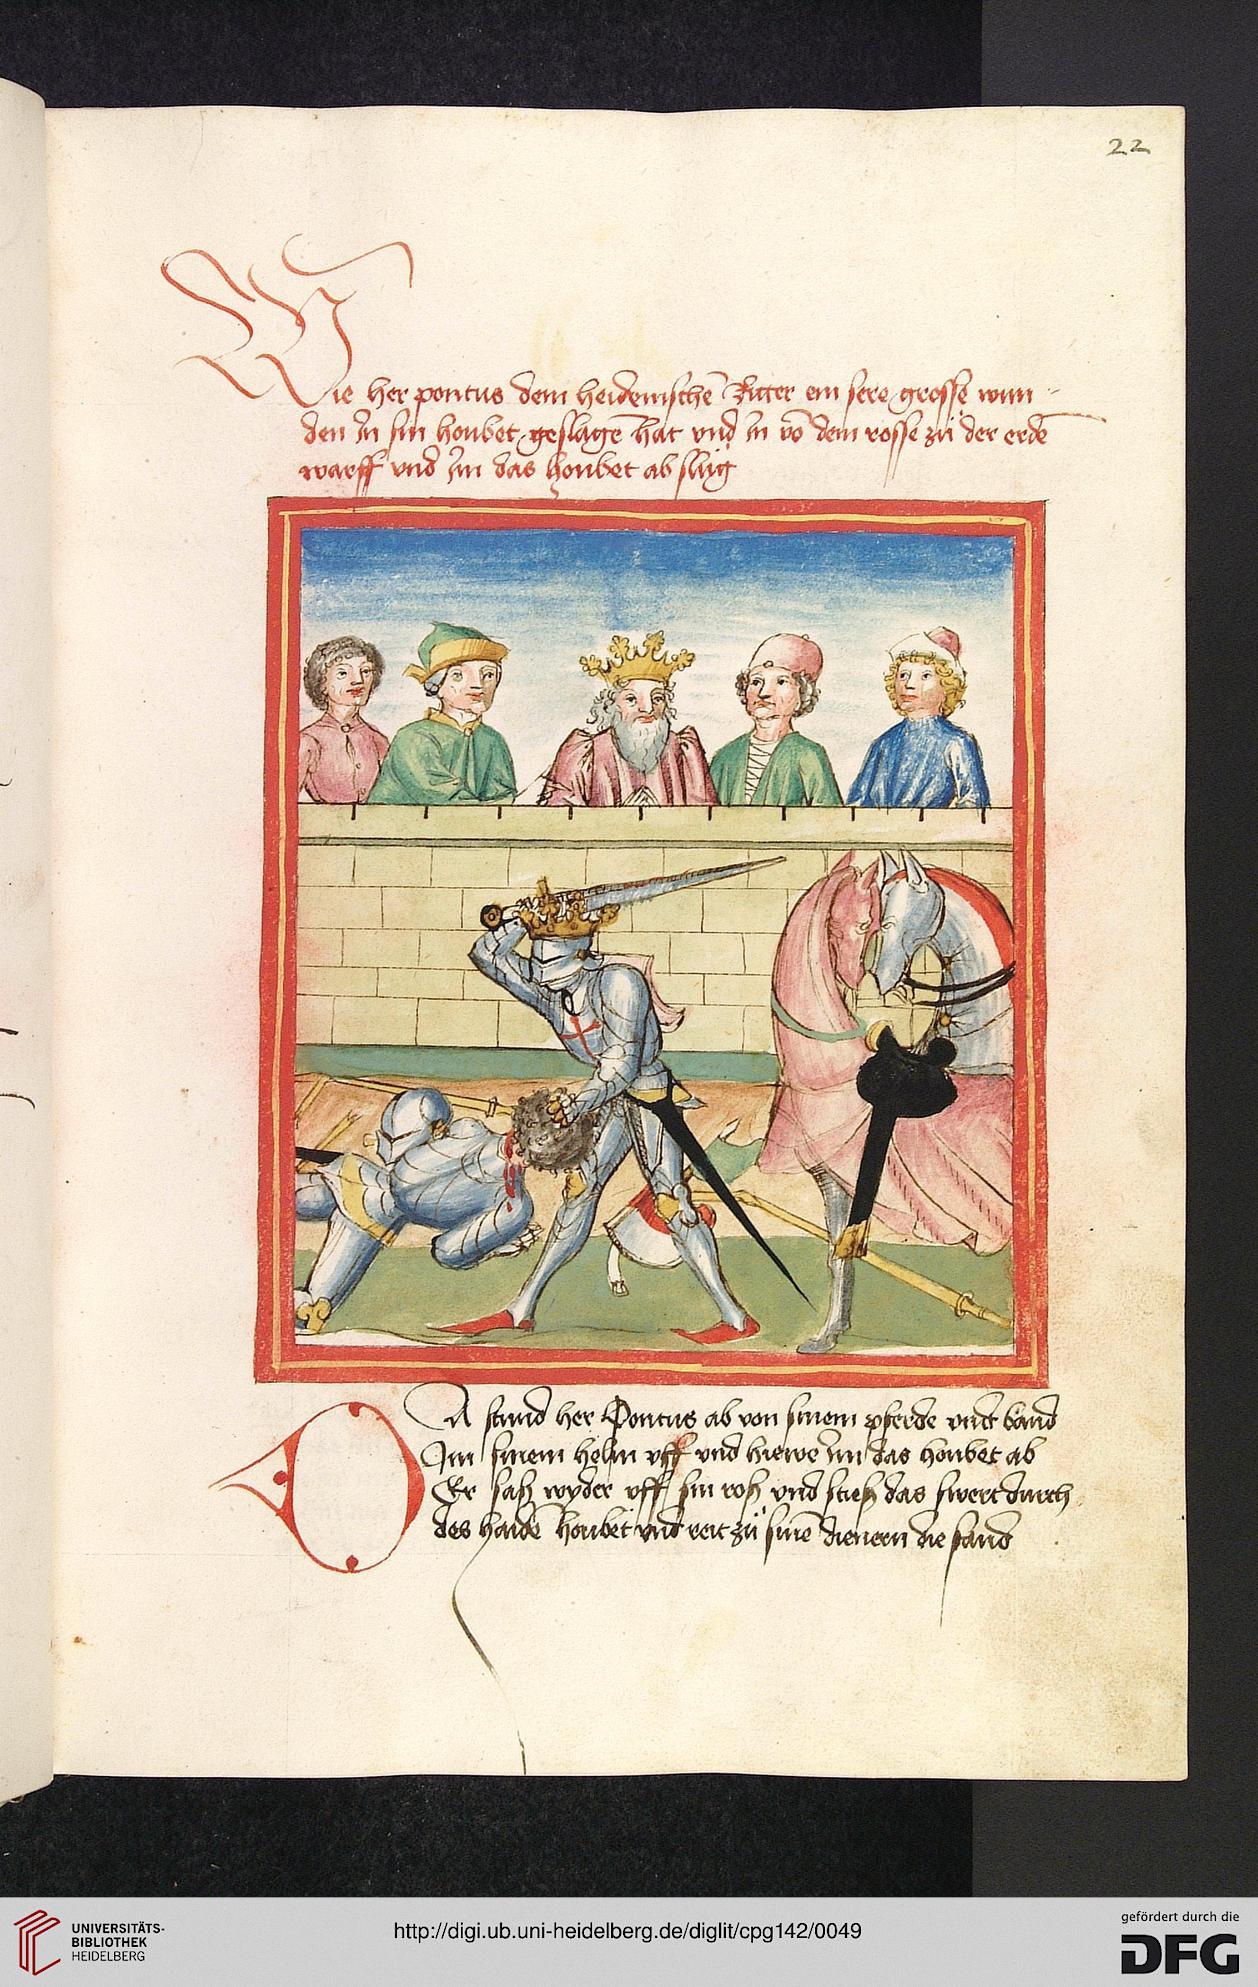 22
Wie her pontus dem heidenischē Ritter ein sere grosse wun-
den In sin houbet geslagē hat und in vō dem rosse zů der erdē
warff und Im das houbet ab slůg
DA stund her Pontus ab von sinem pferde und band
Im sinem helm uff und hiewe Im das houbet ab
Er saß wyder uff sin roß und stieß das swert durch
des haidē houbet und reit zů sinē dienern die fand
UNIVERSITÄTS-
BIBLIOTHEK
HEIDELBERG
http://digi.ub.uni-heidelberg.de/diglit/cpg142/0049
gefördert durch die
DFG